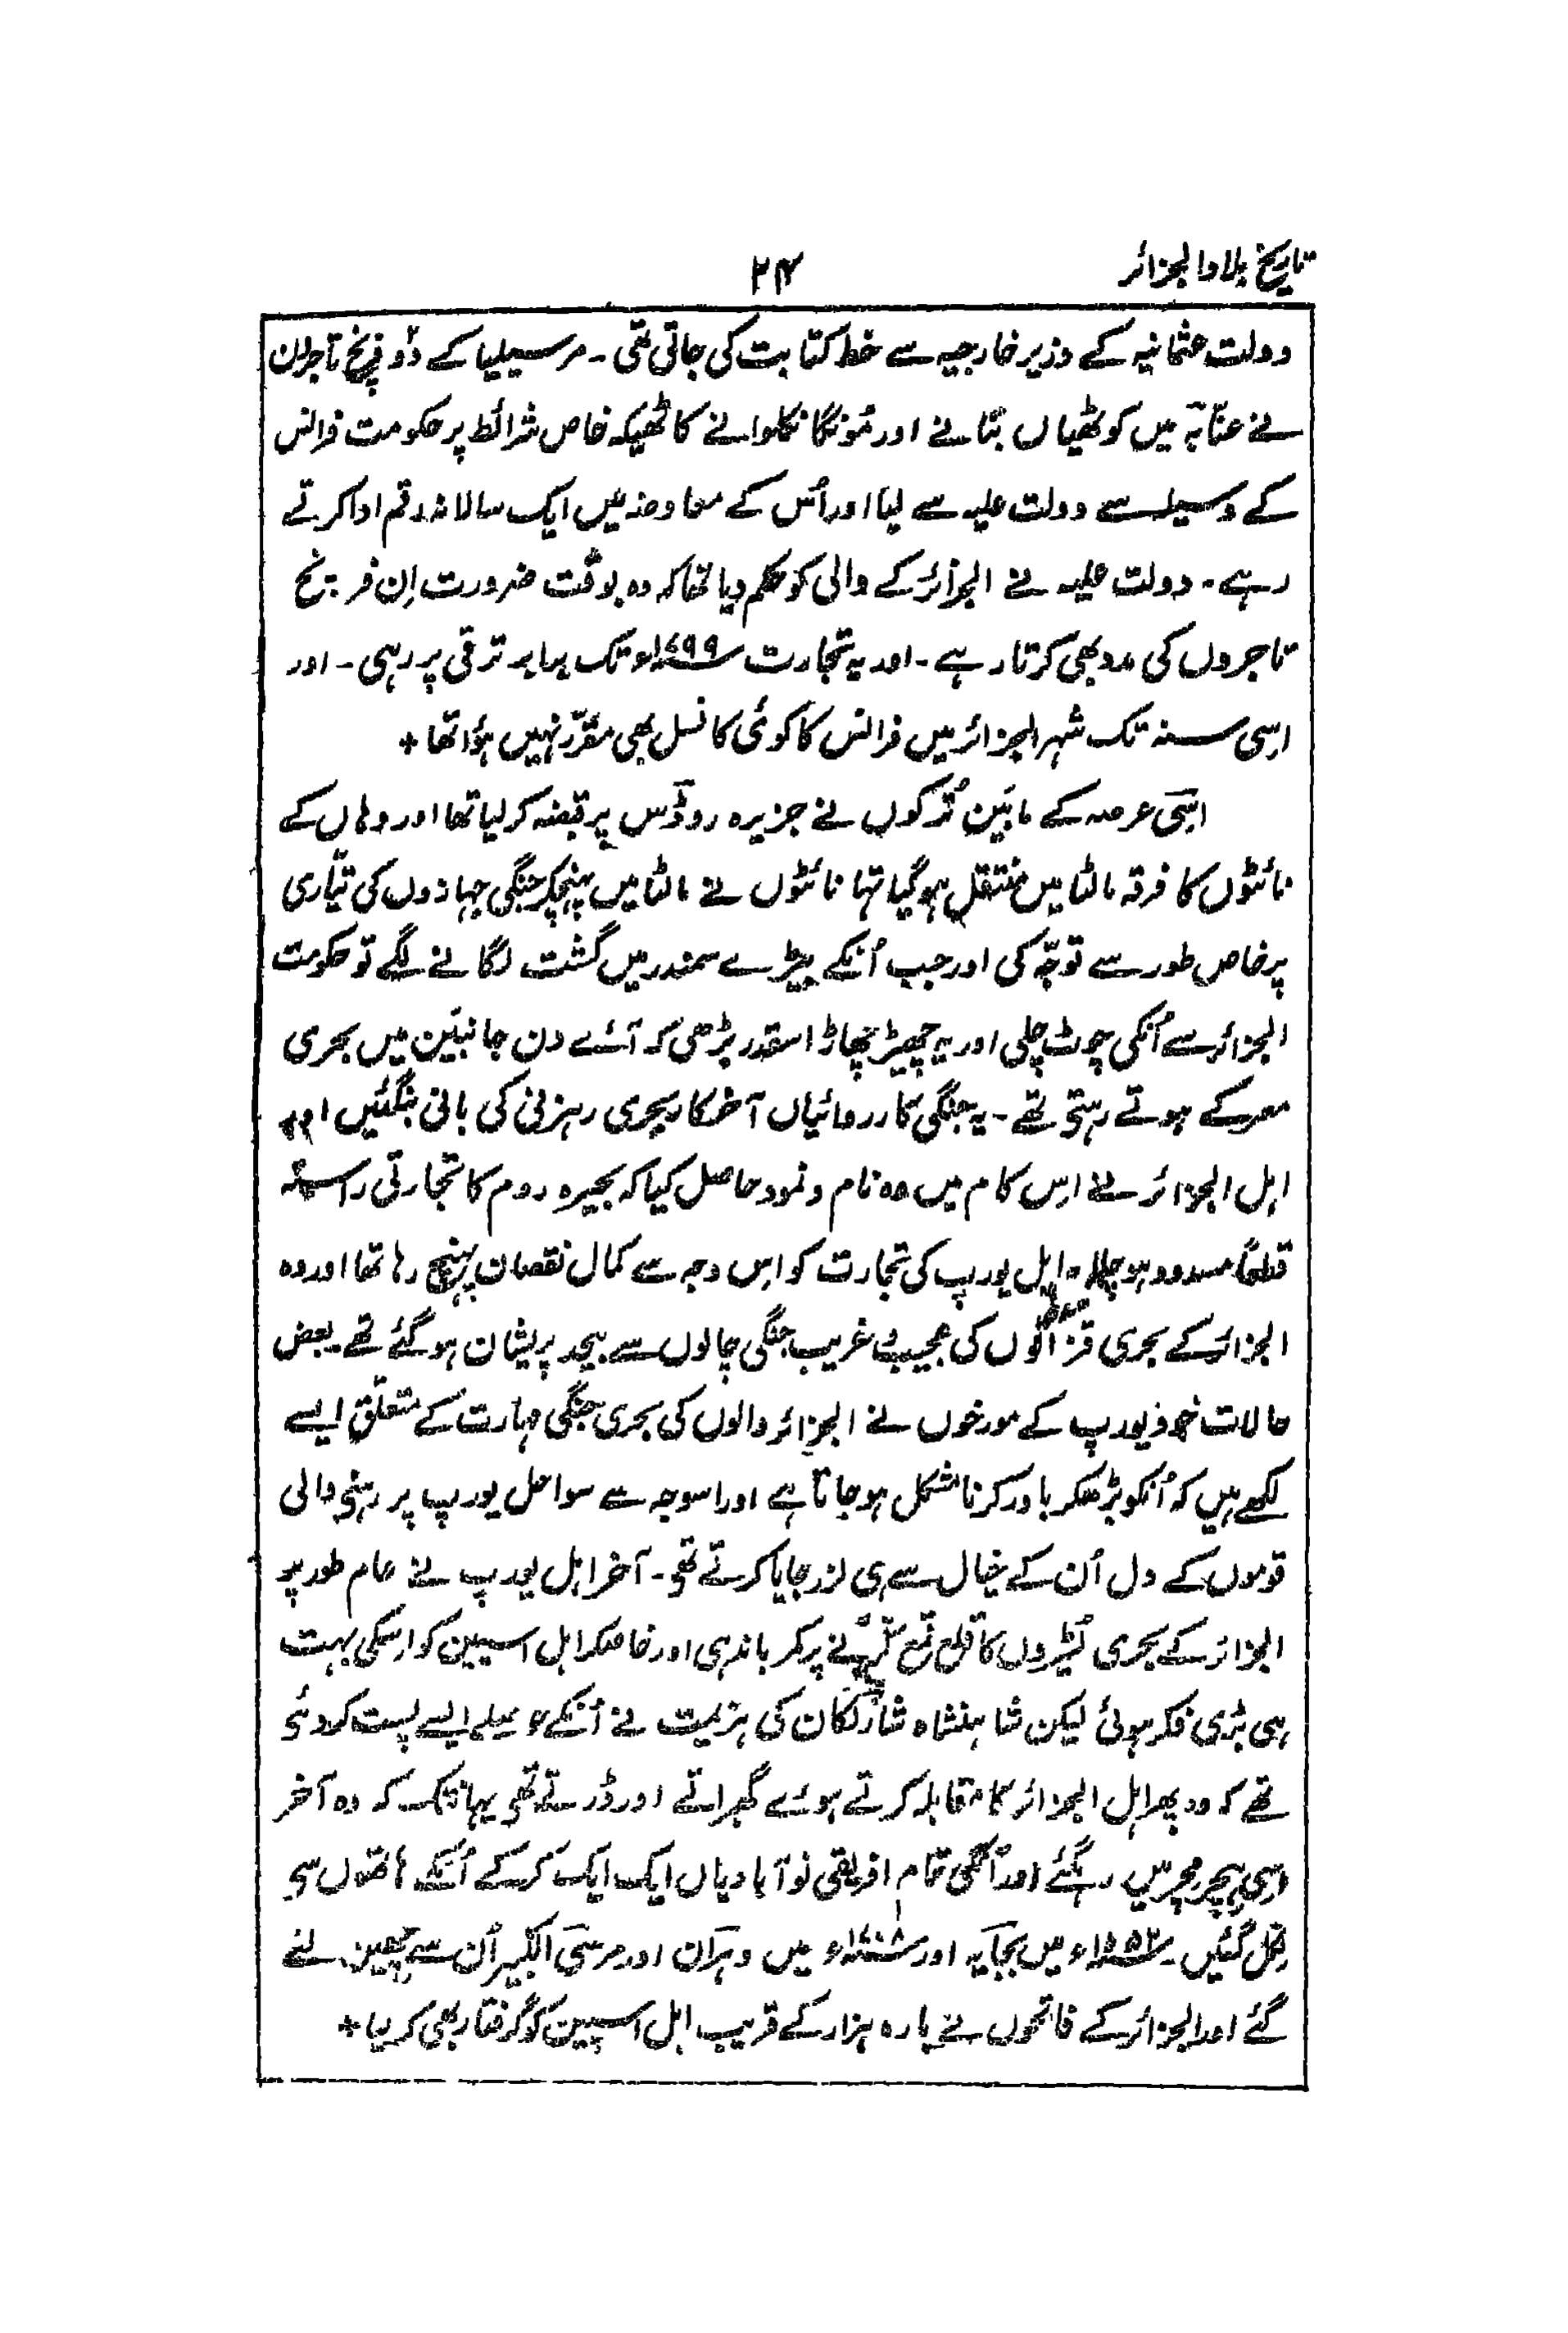 تاریخ بلاد الجزائر
۲۴
دولت عثمانیہ کے وزیر خارجیہ سے خط کتابت کی جاتی تھی۔ مرسیلیا کے دو فرنچ تاجران
نے عنّابہ میں کوٹھیاں بنانے اور مُونگا نکلوانے کا ٹھیکہ خاص شرائط پر حکومت فرانس
کے وسیلے سے دولت علیہ سے لیا اور اُس کے معاوضہ میں ایک سالانہ رقم ادا کرتے
رہے۔ دولت علیہ نے الجزائر کے والی کو حکم دیا تھا کہ وہ بوقت ضرورت اِن فرنچ
تاجروں کی مدد بھی کرتا رہے۔ اور یہ تجارت ۱۷۹۹ء تک برابر ترقی پر رہی۔ اور
اسی سنہ تک شہر الجزائر میں فرانس کا کوئی کانسل بھی مقرّر نہیں ہؤا تھا +
اسی عرصہ کے مابین تُرکوں نے جزیرہ روڈس پر قبضہ کر لیا تھا اور وہاں کے
نائٹوں کا فرقہ مالٹا میں منتقل ہو گیا تہا نائٹوں نے مالٹا میں پہنچکر جنگی جہازوں کی تیّاری
پر خاص طور سے توجّہ کی اور جب اُنکے بیڑے سمندر میں گشت لگانے لگے تو حکومت
الجزائر سے اُنکی چوٹ چلی اور یہ چھیڑ چھاڑ اسقدر بڑھی کہ آئے دن جانبین میں بحری
معرکے ہوتے رہتی تھے۔ یہ جنگی کارروائیاں آخر کار بحری رہزنی کی بانی بنگئیں اور
اہل الجزائر نے اس کام میں وہ نام و نمود حاصل کیا کہ بحیرہ روم کا تجارتی راستہ
قطعاً مسدود ہو چلا۔ اہل یورپ کی تجارت کو اس وجہ سے کمال نقصان پہنچ رہا تھا اور وہ
الجزائر کے بحری قزاقوں کی عجیب و غریب جنگی چالوں سے بیحد پریشان ہو گئے تھے۔ بعض
حالات خود یورپ کے مورخوں نے الجزائر والوں کی بحری جنگی مہارت کے متعلّق ایسے
لکھے ہیں کہ اُنکو پڑھکر باور کرنا مشکل ہو جاتا ہے اور اسوجہ سے سواحل یورپ پر رہنی والی
قوموں کے دل اُن کے خیال سے ہی لرز جایا کرتے تھی۔ آخر اہل یورپ نے عام طور پر
الجزائر کے بحری لُٹیروں کا قلع قمع کرنے پر کمر باندہی اور خاصکر اہل اسپین کو اسکی بہت
ہی بڑی فکر ہوئی لیکن شاہنشاہ شارلکان کی ہزیمت نے اُنکے حوصلے ایسے پست کر دئے
تھے کہ وہ پھر اہل الجزائر کا مقابلہ کرتے ہوئے گھبراتے اور ڈرتے تھی یہانتک کہ وہ آخر
اسی ہیچر مچر میں رہگئے اور اُنکی تمام افریقی نوآبادیاں ایک ایک کرکے اُنکے ہاتھوں سی
نکل گئیں۔ میں بجایہ اور ۱۷۰۸ء میں وہران اور مرسی الکبیر اُن سے چھین لئے
گئے اور الجزائر کے فاتحوں نے بارہ ہزار کے قریب اہل اسپین کو گرفتار بھی کر لیا +